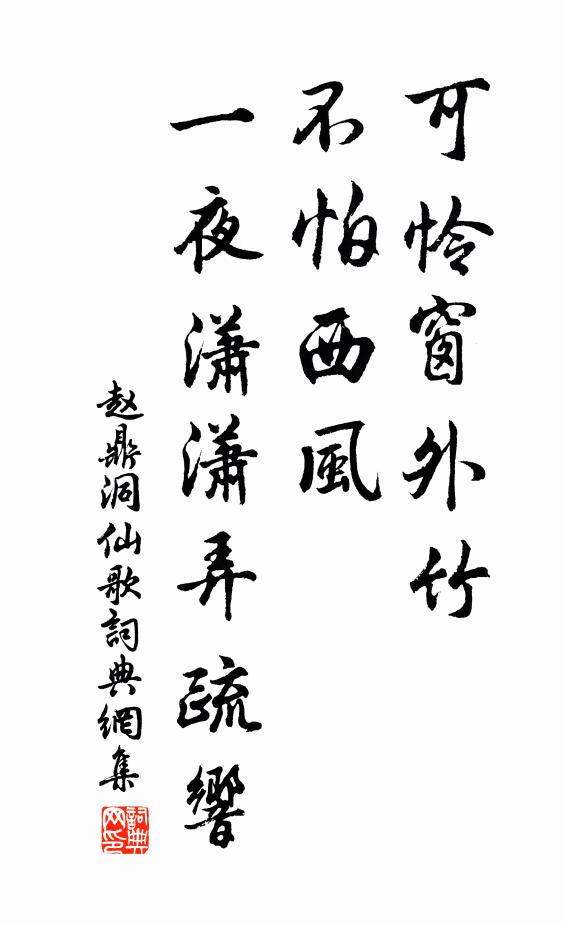 可怜窗外竹
不怕西風
一夜瀟瀟弄疏響
赵鼎洞仙歌詞典網集
詞典网印